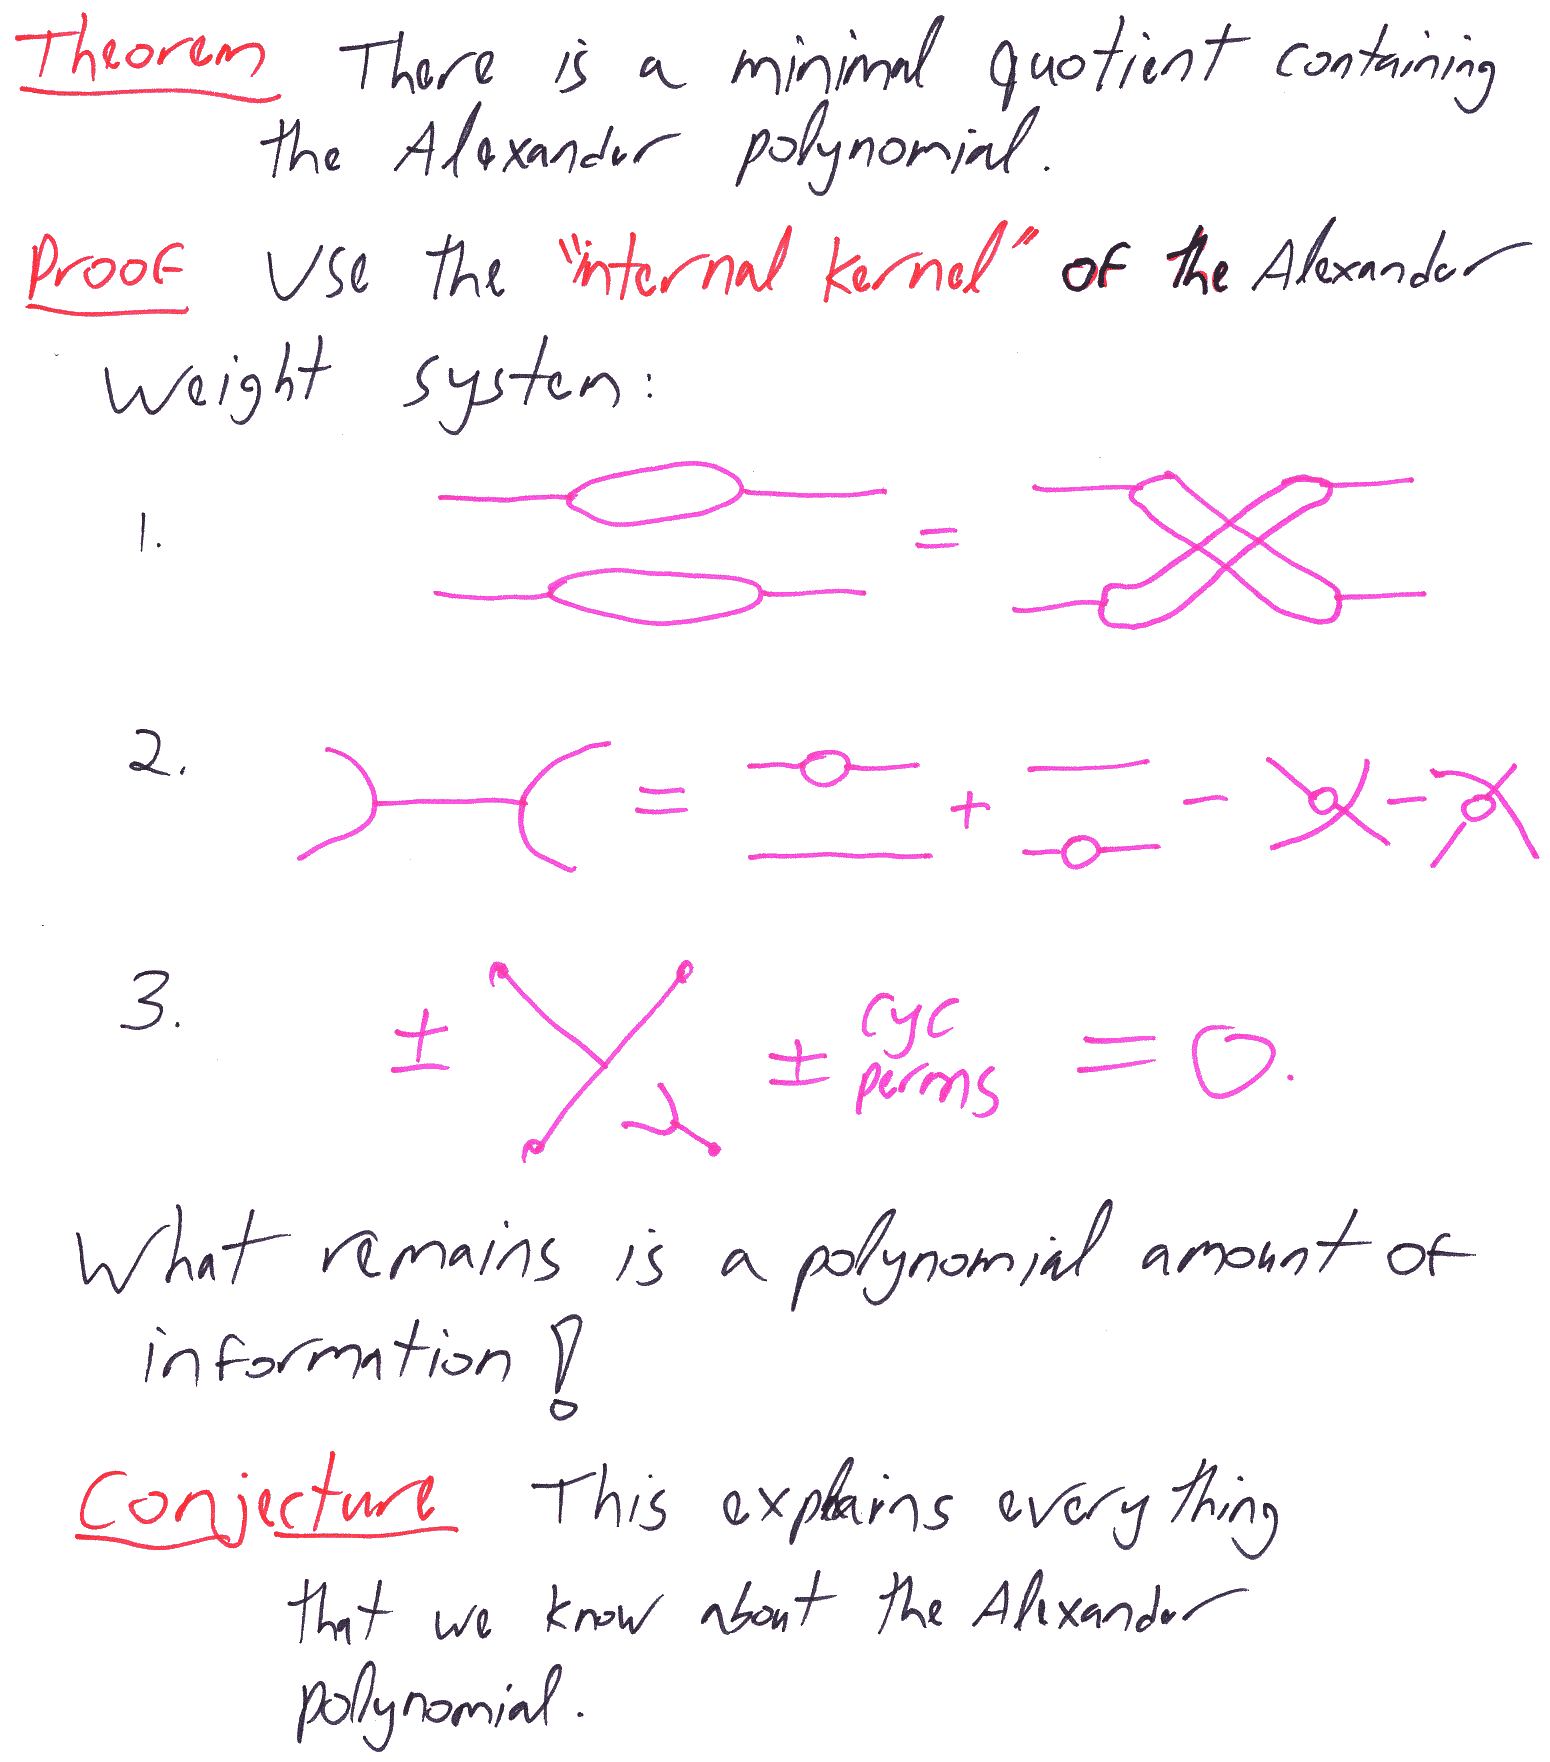 Theorem There is a minimal quotient containing
the Alexander polynomial.
Proof Use the "internal kernel" of the Alexander
weight system:
1. =
2. = + - -
3. ± ± cyc
perms = 0.
What remains is a polynomial amount of
information!
Conjecture This explains everything
that we know about the Alexander
polynomial.